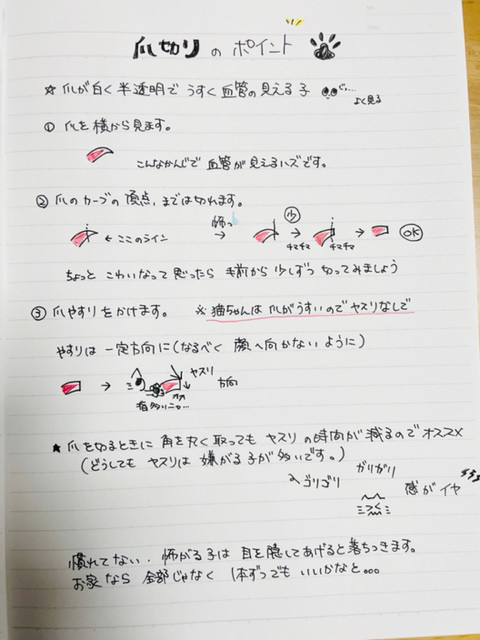 爪切りのポイント
☆爪が白く半透明でうすく血管の見える子
じー...
よく見る
① 爪を横から見ます。
こんなかんじで血管が見えるハズです。
② 爪のカーブの頂点までは切れます。
←ここのライン
怖っ
→
少
チマチマ
→
チマチマ
→
OK
ちょっとこわいなって思ったら手前から少しずつ切ってみましょう
③ 爪やすりをかけます。 ※猫ちゃんは爪がうすいのでヤスリなしで
やすりは一定方向に(なるべく顔へ向かないように)
→
ヤスリ
方向
★爪を切るときに角を丸く取ってもヤスリの時間が減るのでオススメ
(どうしてもヤスリは嫌がる子が多いです。)
ゴリゴリ
ガリガリ
感がイヤ
慣れてない、怖がる子は目を隠してあげると落ちつきます。
お家なら全部じゃなく1本ずつでもいいかなと...